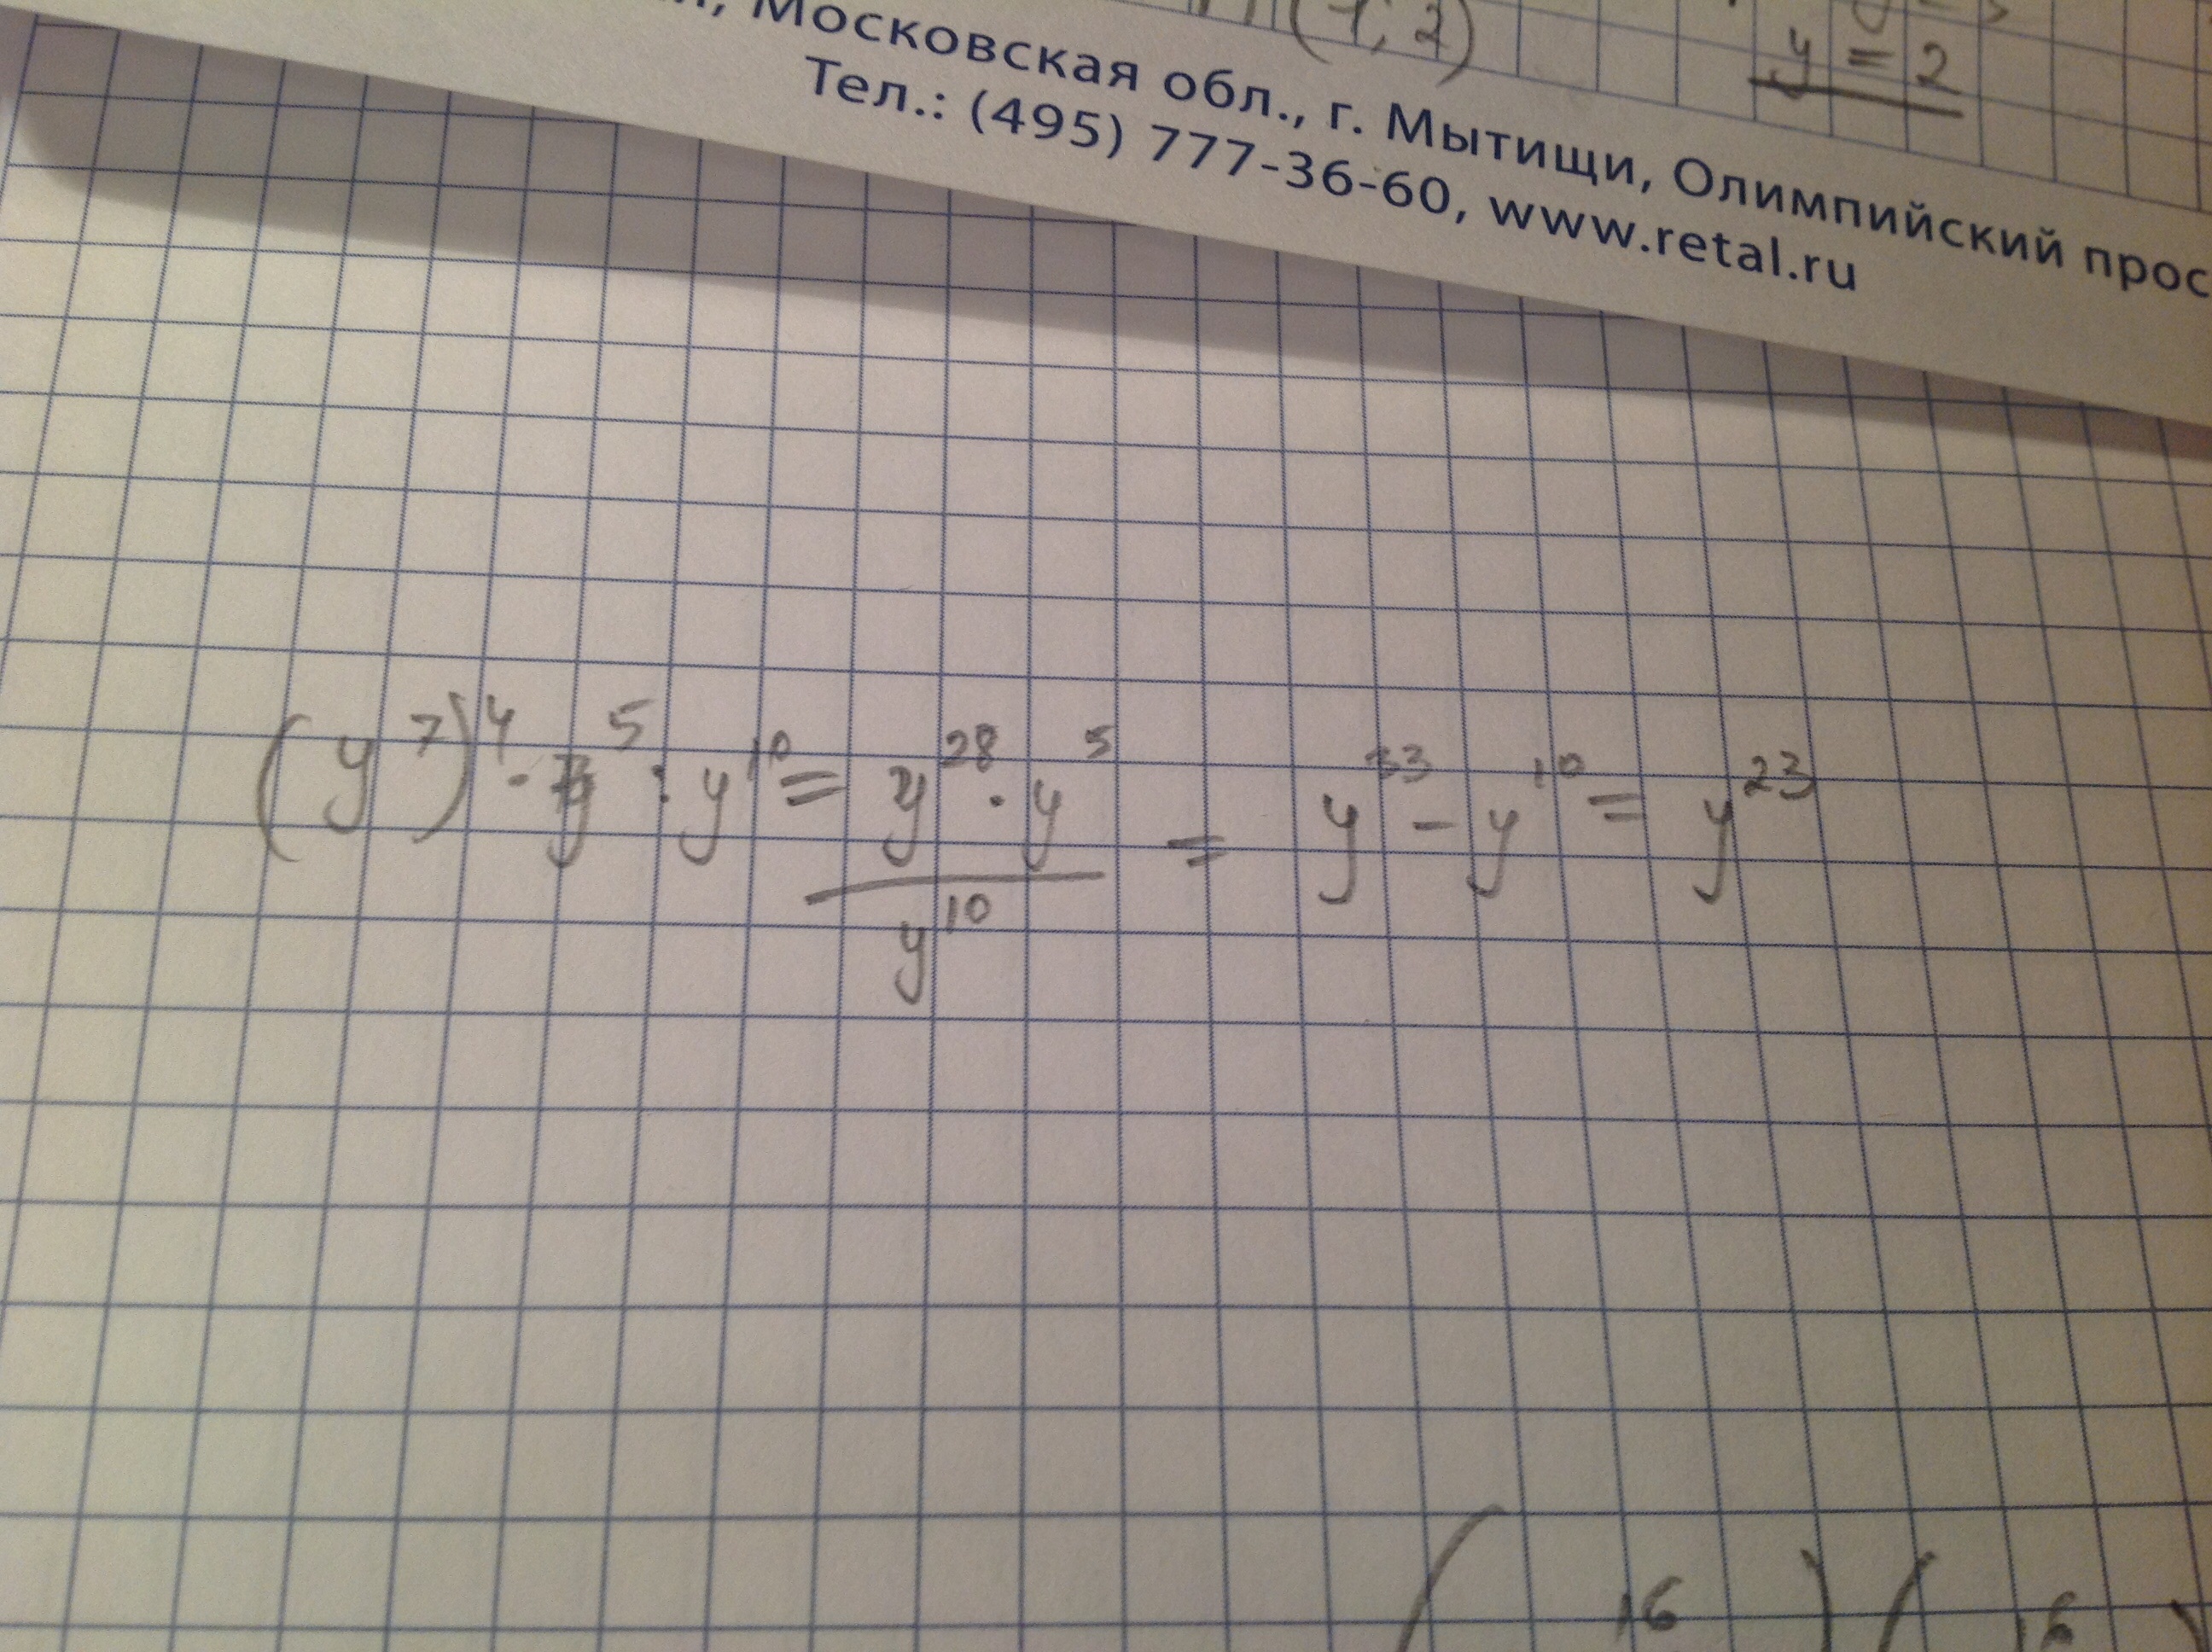 (1; 2)
y = 2
Московская обл., г. Мытищи, Олимпийский прос
Тел.: (495) 777-36-60, www.retal.ru
(y⁷)⁴ · y⁵ : y¹⁰ = y²⁸ · y⁵ / y¹⁰ = y³³ - y¹⁰ = y²³
16 16